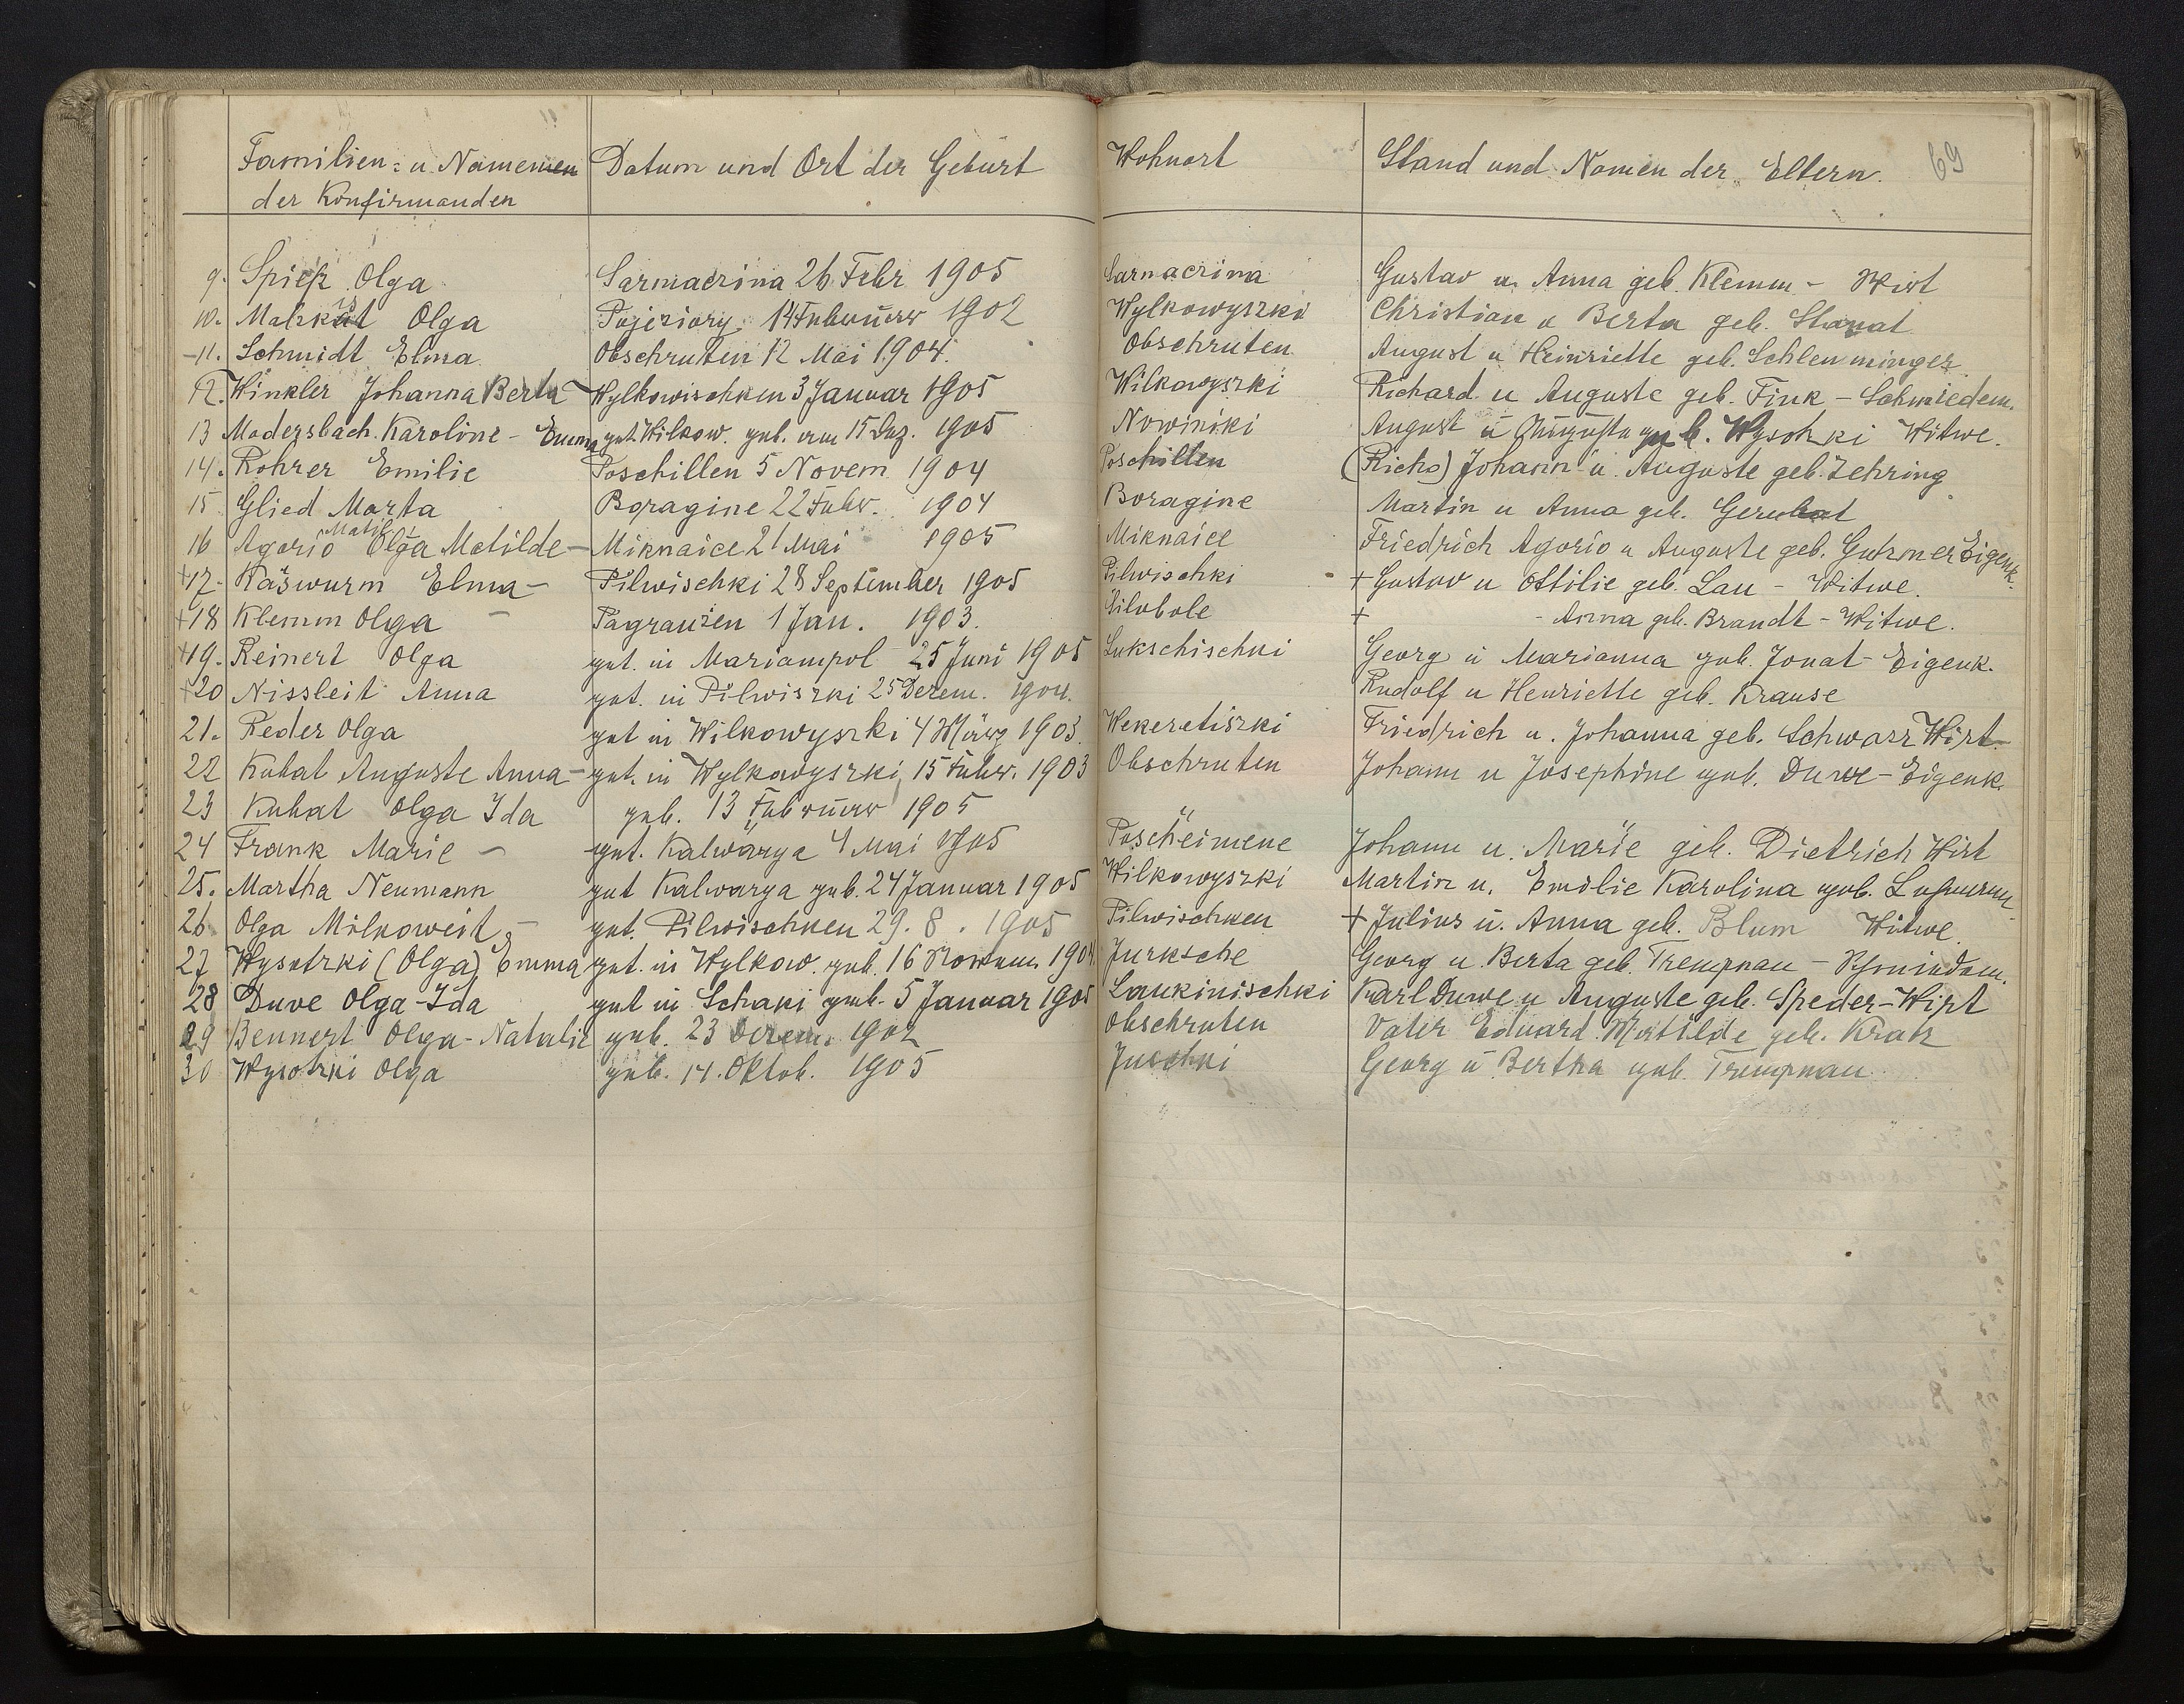 Familien= u Namen Datum und Ort der Geburt Wohnort Stand und Namen der Eltern. 69
der Konfirmanden
9. Spieß Olga Sarmacrina 26 Febr 1905 Sarnacrina Gustav u. Anna geb. Klemm - Wirt
10. Olga Pojeziory 14 Februar 1902 Wylkowyszki Christian u Berta geb.
11. Schmidt Elma Obschruten 12 Mai 1904. Obschruten. August u Heinriette geb. Schlenminger
12. Winkler Johanna Berta Wylkowischken 3 Januar 1905 Wilkowyszki Richard u Auguste geb. Fink - Schmiedem.
13 Madersbach Karoline - Emma get. Wilkow. geb. am 15 Dez. 1905 Nowiniki August u Augusta geb. Wysotzki Witwe.
14. Rohrer Emilie Poschillen 5 Novem 1904 Poschillen Johann u. Auguste geb. Zehring
15 Glied Marta Boragine 22 Febr. 1904 Boragine Martin u Anna geb.
16 Agorio Olga Matilde - Miknaice 21 Mai 1905 Miknaice Friedrich Agorio u Auguste geb. Gutzmer Eigenk.
+17. Käswurm Elma - Pilwischki 28 September 1905 Pilwischki + Gustav u Ottilie geb. Lau - Witwe.
+18 Klemm Olga - Pagrauzen 1 Jan. 1903. + - Anna geb. Brandt - Witwe.
+19. Reinert Olga get. in Mariampol 25 Juni 1905 Lukschischki Georg u Marianna geb. Jonat - Eigenk.
+20 Nissleit Anna get. in Pilwiszki 25 Dezem. 1904. Rudolf u Henriette geb. Krause
21. Reder Olga get in Wilkowyszki 4 März 1903. Wekeretiszki Friedrich u. Johanna geb. Schwarz Wirt
22 Kubat Auguste Anna - get. in Wylkowyszki, 15 Febr. 1903 Obschruten Johann u Josephine geb. Duwe - Eigenk.
23 Kubat Olga Ida geb. 13 Februar 1905
" " "
24 Frank Marie - get. Kalwarya 4 Mai 1905 Poscheimene Johann u. Marie geb. Dietrich Wirt
25. Martha Neumann get Kalwarya geb. 24 Januar 1905 Wilkowyszki Martin u. Emilie Karolina geb.
26 Olga Milkoweit - get. Pilwischken 29. 8. 1905 Pilwischken + Julius u. Anna geb. Blum Witwe
27 Wysotzki (Olga) Emma get. in Wylkow. geb. 16 Novem 1904. Jurksche Georg u. Berta geb. Trempnau - Schmiedem.
28 Duve Olga - Ida get in Schaki geb. 5 Januar 1905 Laukinischki Karl Duwe u Auguste geb. Speder - Wirt
29 Bennert Olga - Natalie geb. 23 Dezem. 1902 Obschruten Vater Eduard. Matilde geb. Kratz
30 Wysotzki Olga geb. 14. Oktob. 1905 Juschki Georg u Bertha geb. Trempnau